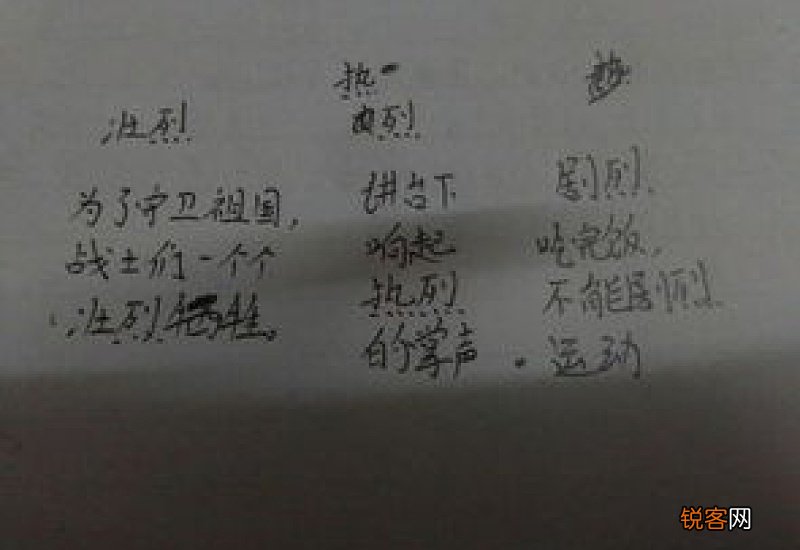 壮烈
为了守卫祖国，
战士们一个个
壮烈牺牲。
热
烈
讲台下
响起
热烈
的掌声.
剧烈
吃完饭，
不能剧烈
运动
锐客网